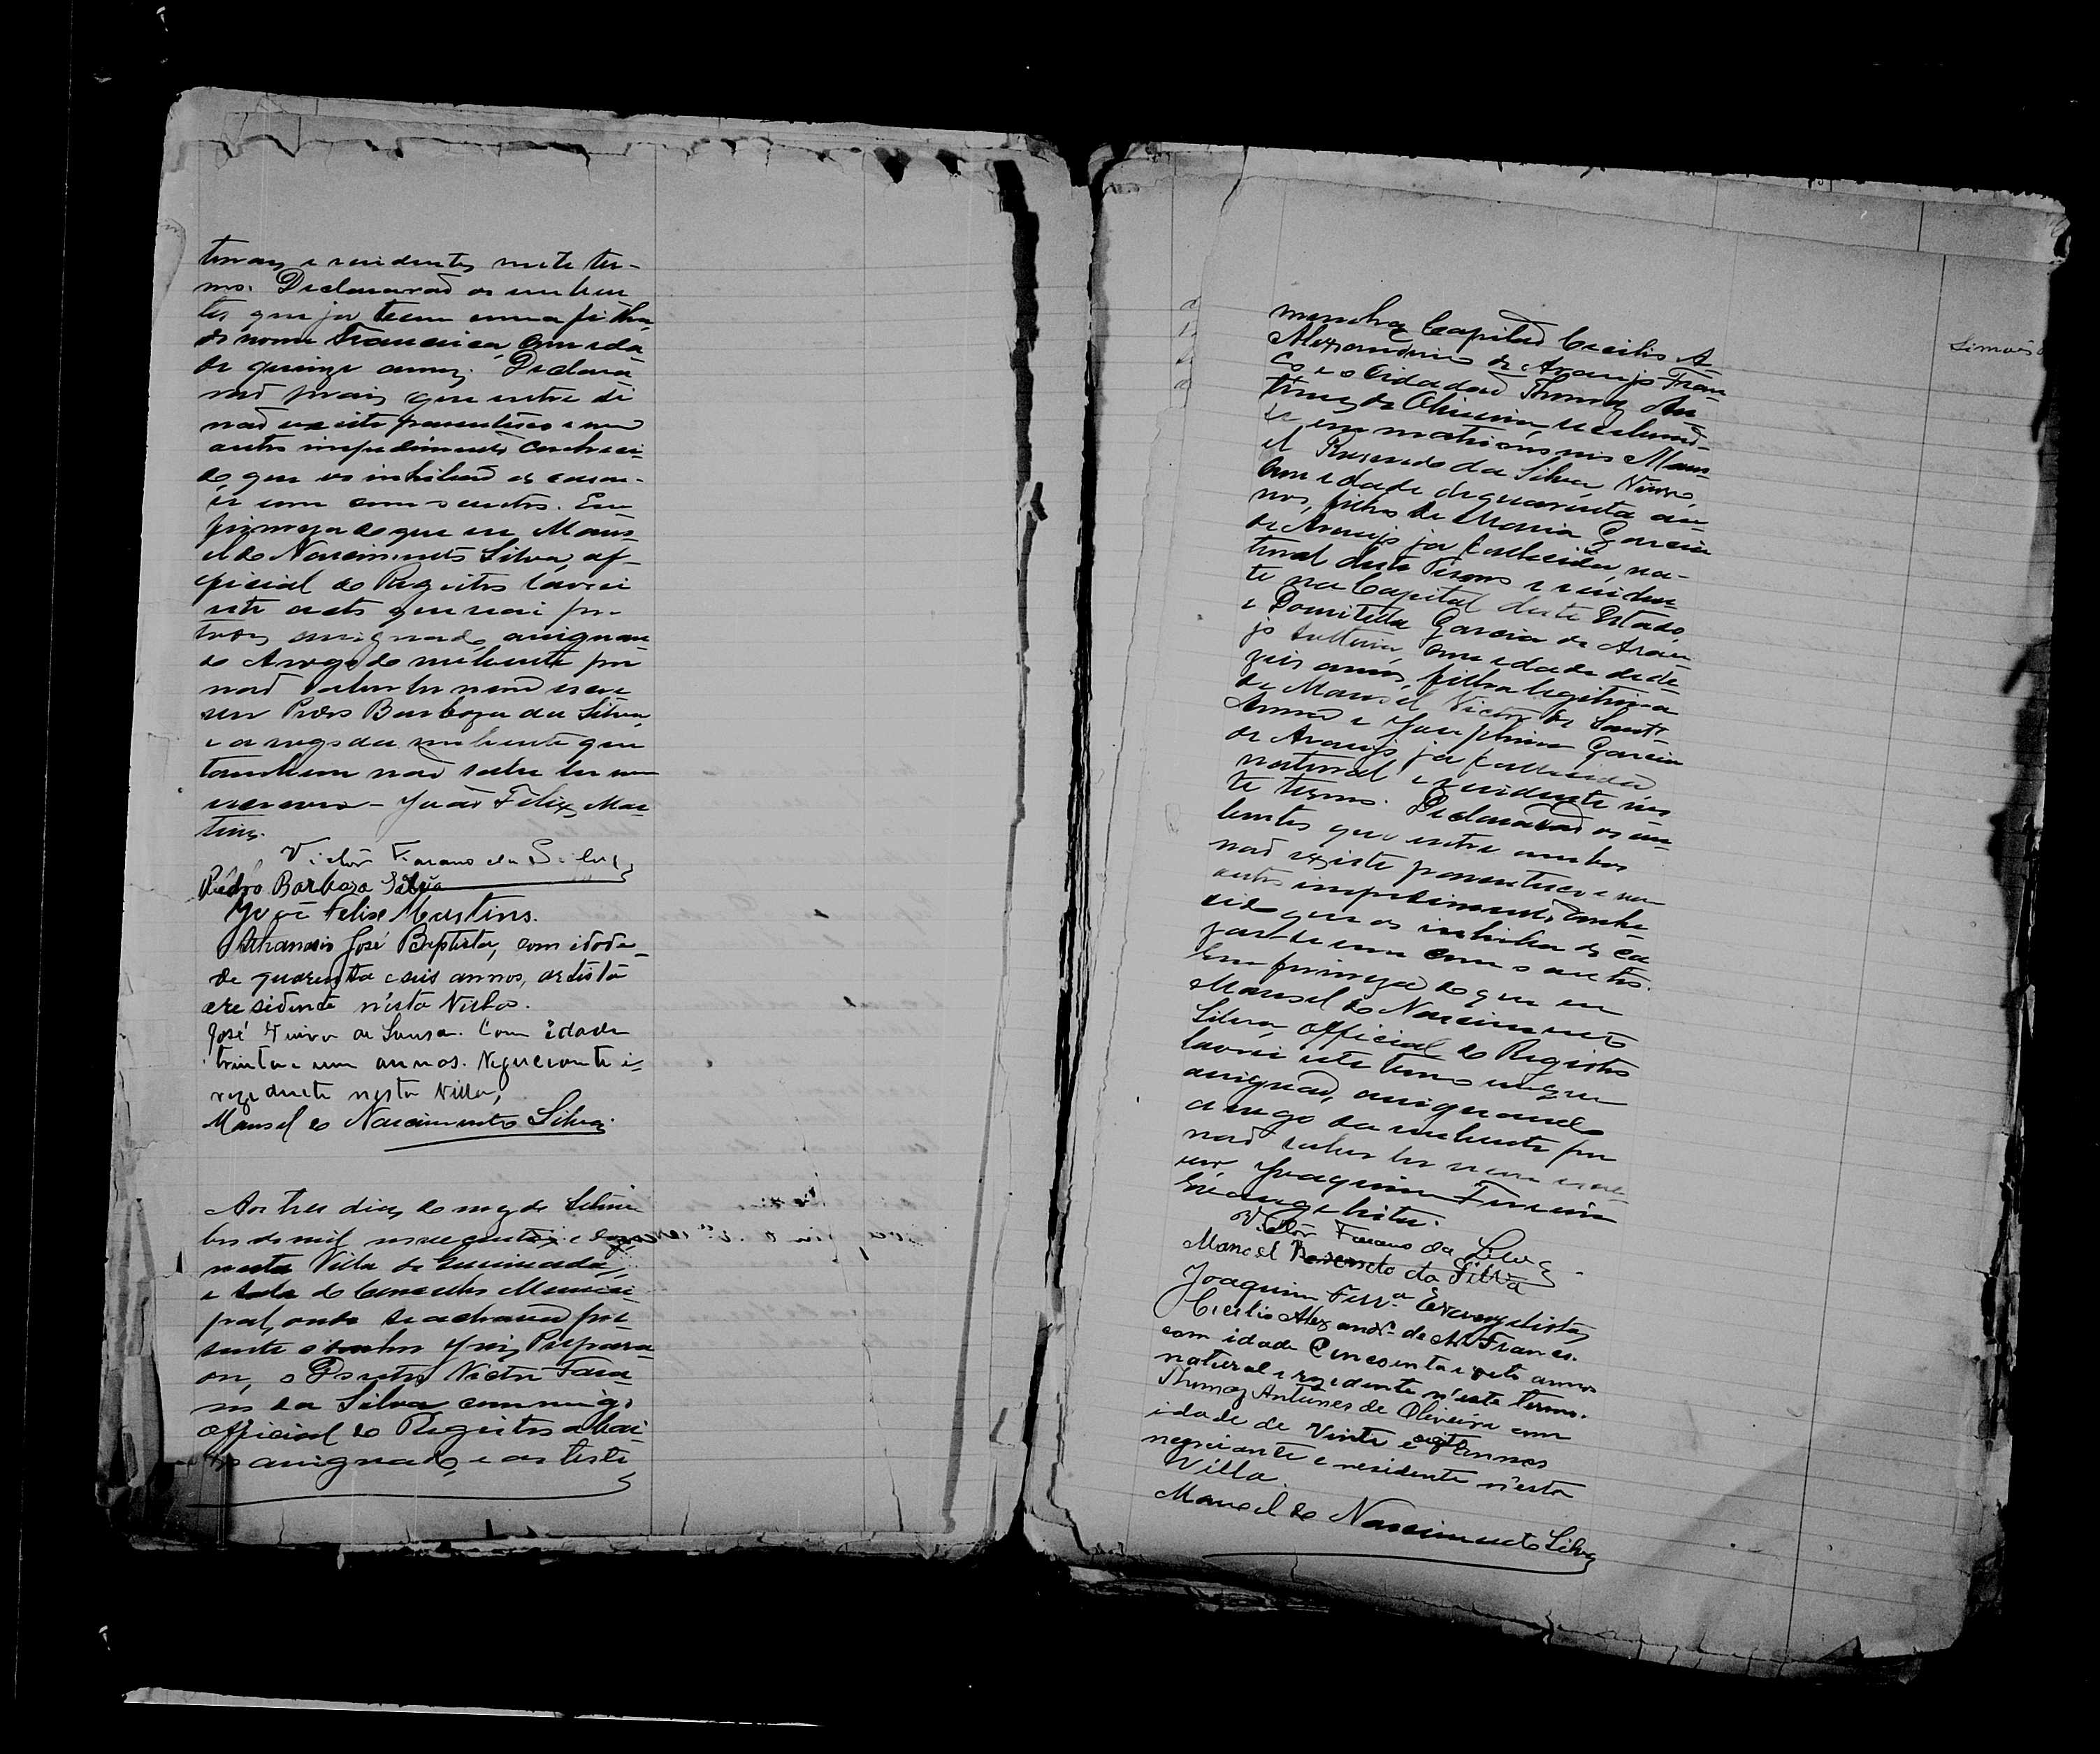 turaes e residentes neste ter-
mo. Declararaõ os nuben
tes que ja teem uma filha,
de nome Francisca com ida
de quinze annos. Declara
raõ mais que entre si
naõ existe parentesco e nem
outro impedimento conheci-
do que os inhibaõ de casar-
se um com o outro. Em
firmeza do que eu Mano
el do Nascimento Silva, of-
ficial do Registro lavrei
este acto que vai por
todos assignado, assignan
do Arogo do nubente por
naõ saber ler nem escre
ver Pedro Barboza da Silva
e a rogo da nubente que
tambem naõ sabe ler nem
escrever - João Felix Mar
tins.
Victor Farano da Silva
Pedro Barboza Silva
João Felix Martins.
Athanasio José Baptista, com idade
de quarenta e seis annos, artista
e residente nésta Villa.
José Vieira de Sousa. Com idade
trinta e um annos. Negociante e
rezidente nesta Villa,
Manoel do Nascimento Silva.
Aos tres dias do mez de Setem
bro de mil novecentos e doze
nesta Villa de Queimadas,
e sala do Conselho Munici
pal, onde se achava pre
sente o senhor Juiz Prepara
dor, o Doutor Victor Fara
no da Silva commigo
official do Registro abai
xo assignado, e as teste
munhas Capitaõ Cecilio A
Alexandrino de Araujo Fran
co e o Cidadaõ Thomaz An
tunes de Oliveira, receberaõ
se em matrimonio Mano
el Rosendo da Silva, Viuvo,
com idade de quarenta an
nos, filho de Maria Garcia
de Araujo ja fallecida, na-
tural deste Termo e residen
te na Capital deste Estado,
e Domitilla Garcia de Arau
jo solteira, com idade de de
zeis annos, filha legitima
de Manoel Victor de Sant'
Anna e Josephina Garcia
de Araujo ja fallecida
natural e residente nes
te termo. Declararaõ os nu
bentes que entre ambos
naõ existe parentesco e nem
outro impedimento conhe
cido que os inhiba de ca
sar-se um com o outro.
Em firmeza do que eu
Manoel do Nascimento
Silva, official do Registro
lavrei este termo em que
assignaõ, assignando
a rogo da nubente por
naõ saber ler nem escre-
ver Joaquim Ferreira
Evangelista.
Victor Farano da Silva
Manoel Rosendo da Silva
Joaquim Ferrª Evangelista
Cecilio Alexandr.º de Aº Franco.
com idade Cincoenta e oito annos
natural e rezidente n'este termo.
Thomaz Antunes de Oliveira com
idade de vinte e oito annos
negociante e residente n'esta
Villa.
Manoel do Nascimento Silva